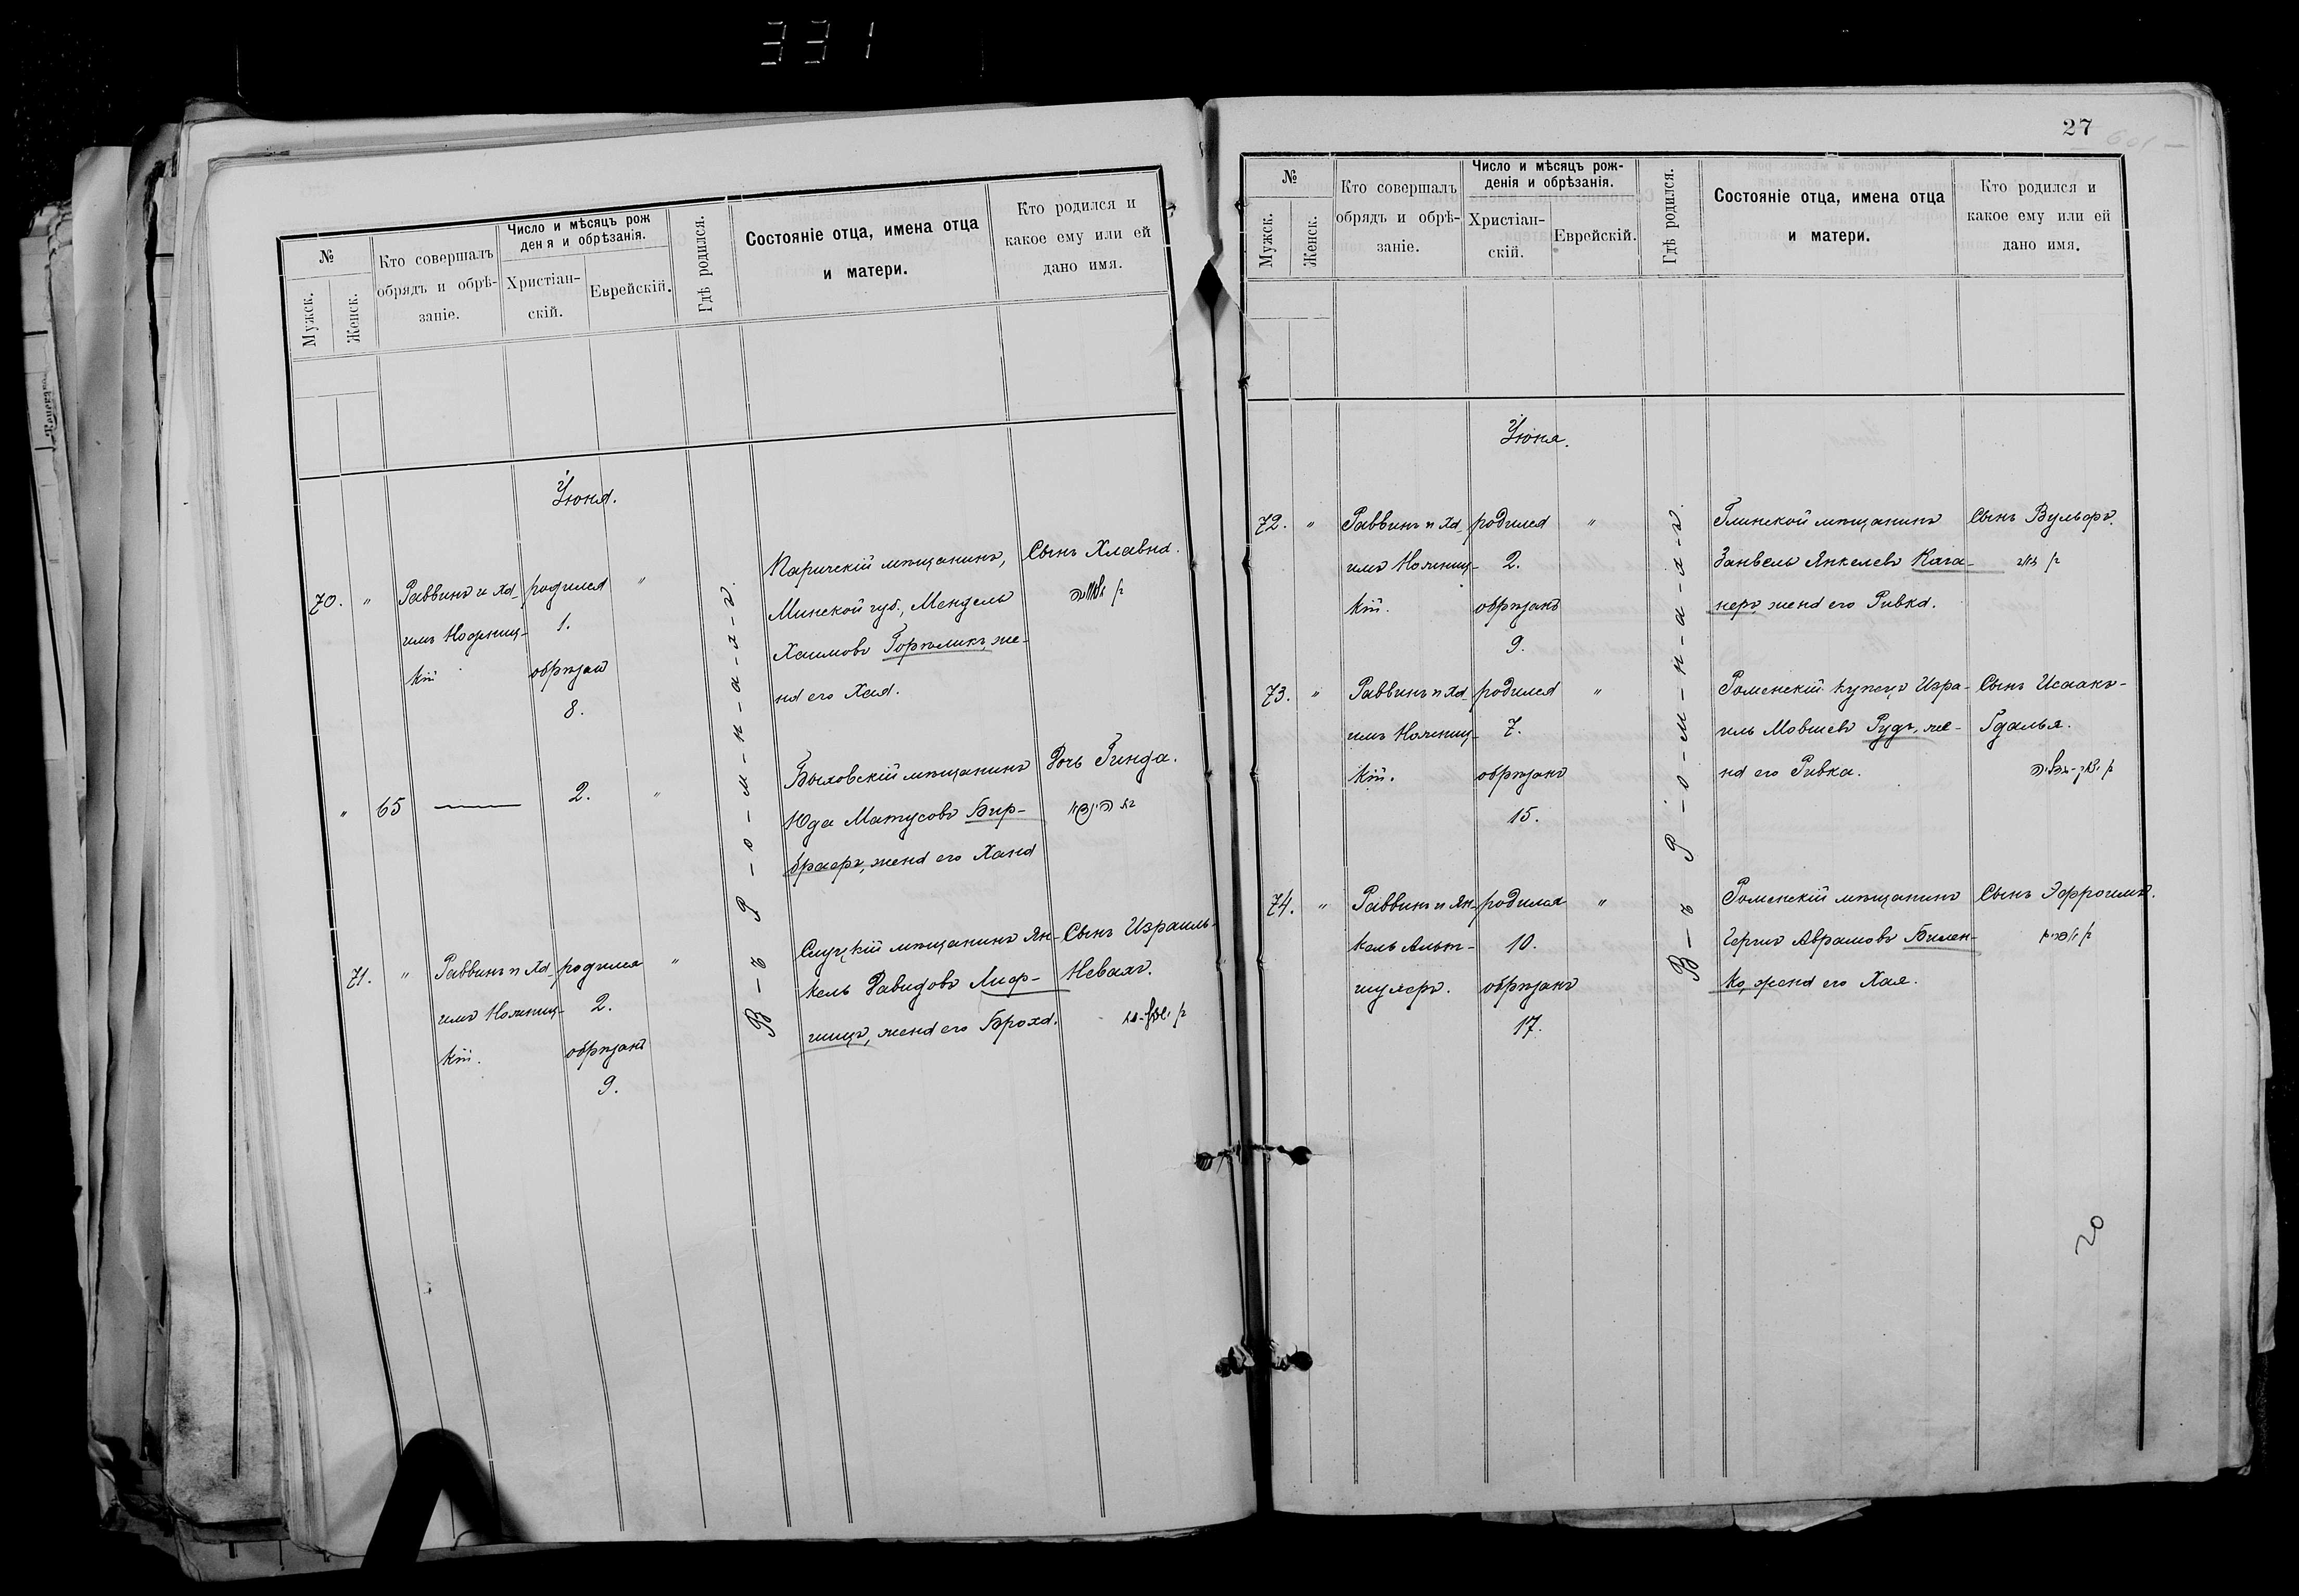 331
№
Мужск.
Женск.
Кто совершалъ
обрядъ и обрѣ-
заніе.
Число и мѣсяцъ рож
ден я и обрѣзанія.
Христіан-
скій.
Еврейскій.
Гдѣ родился.
Состояніе отца, имена отца
и матери.
Кто родился и
какое ему или ей
дано имя.
Іюня.
70. "
Раввинъ и Ха-
имъ
кій
родился
1.
обрѣзан
8.
"
Паричскій мѣщанинъ,
Минской губ., Мендель
Хаимовъ Горѣликъ, же-
на его Хая.
Сынъ Хлавна.
" 65
2.
"
Быховскій мѣщанинъ
Юда Матусовъ Бир-
браеръ, жена его Хана
Дочь Гинда.
71. "
Раввинъ и Ха-
имъ
кій.
родился
2.
обрѣзанъ
9.
"
Слуцкій мѣщанинъ Ян-
кель Давидовъ Лиф-
шицъ, жена его Броха.
Сынъ Израиль-
Невахъ.
В-ъ Р-о-м-н-а-х-ъ.
27
№
Мужск.
Женск.
Кто совершалъ
обрядъ и обрѣ-
заніе.
Число и мѣсяцъ рож-
денія и обрѣзанія.
Христіан-
скій.
Еврейскій.
Гдѣ родился.
Состояніе отца, имена отца
и матери.
Кто родился и
какое ему или ей
дано имя.
Іюня.
72. "
Раввинъ и Ха-
имъ
кій.
родился
2.
обрѣзанъ
9.
"
Глинской мѣщанинъ
Занвель Янкелевъ Кага-
неръ, жена его Ривка.
Сынъ Вульфъ.
73. "
Раввинъ и Ха-
имъ
кій.
родился
7.
обрѣзанъ
15.
"
Роменскій купецъ Изра-
иль Мовшевъ Рудъ, же-
на его Ривка.
Сынъ Исаакъ-
Гдалья.
74. "
Раввинъ и Ян-
кель Альт-
шулеръ.
родился
10.
обрѣзанъ
17.
"
Роменскій мѣщанинъ
Герцъ Абрамовъ Билен-
ко, жена его Хая.
Сынъ Эфроимъ.
В-ъ Р-о-м-н-а-х-ъ.
20